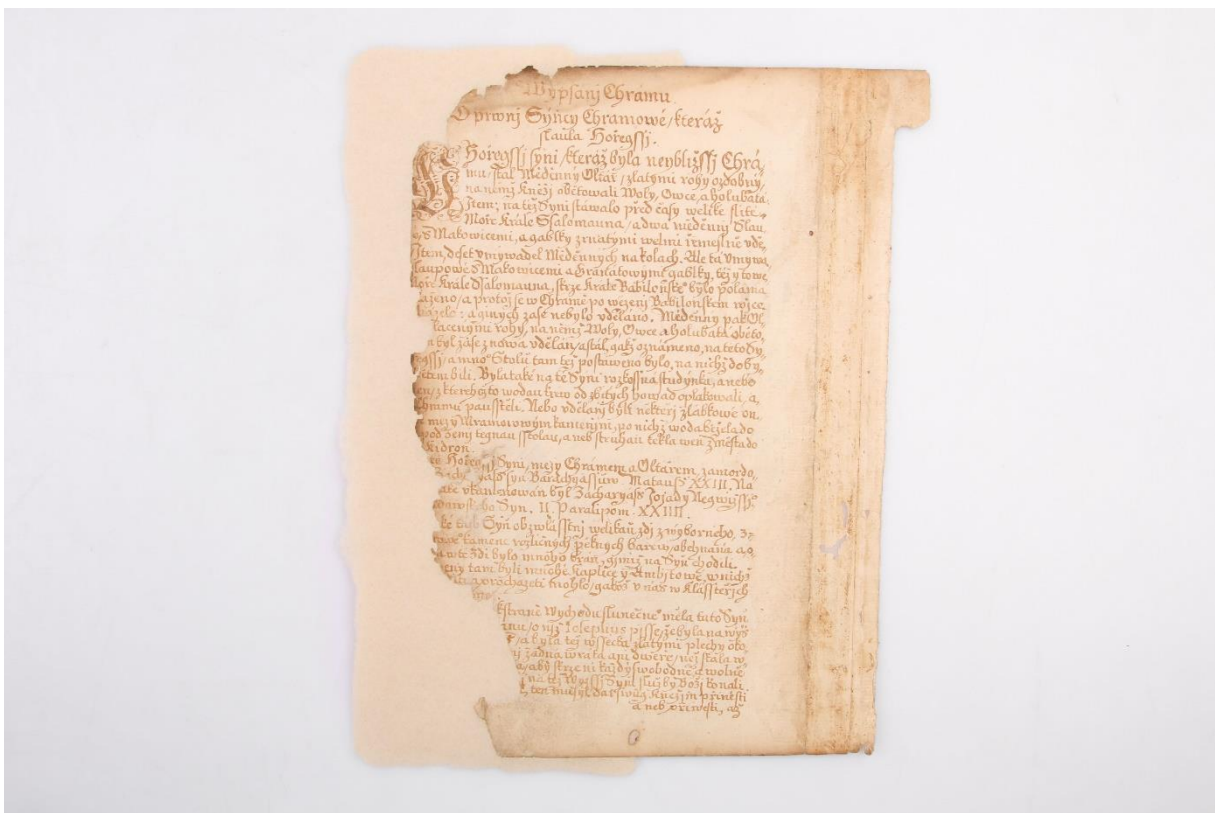 Wypsánj Chrámu
O prwnj Syńcy Chramowé, kteráž
slaula Hořegssj.
Hořegssj syni, kteráž byla neyblizssj Chrá
mu, stál Měděnný Oltář, zlatými rohy ozdobný,
na němž Kněžj obětowali Woly, Owce, a holubata.
Item; na též Syni stáwalo před časy weliké slité
Moře Krále Ssalomauna, a dwa měděnný Slau
s Makowicemi, a gablky zrnatými welmi řemeslně vdě
Item, deset vmywadel Měděnných na kolach. Ale ta Vmywa
slaupowé s Makowicemi a Granátowými gablky, též y to we
Moře Krále Ssalomauna, skrze Krále Babilonské° bylo poláma
a protož se w Chrámě po wězenj Babilonském wjce
: a giných zase nebylo vděláno. Měděnný pak Ol
rohy, na němž Woly, Owce a holubata oběto,
a byl zase z nowa vdělán, a stál, gakž oznámeno, na této Sy
a mno° Stolů tam též postaweno bylo, na nichž doby
bili. Byla také na té Syni rozkossná studýnka, a nebo
z kteréhožto wodau krew od zbitých howad oplakowali, a
Chrámu pausstěli. Nebo vdělanj byli někteřj žlábkowé on
mezy Mramorowým kamenjm, po nichž woda běžela do
pod zemj tegnau sstolau, a neb struhau tekla wen z města do
Kidron.
Hořegssj Syni, mezy Chrámem a Oltářem zamordo,
syn Barachyassůw Mataus XXIII. Na
vkamenowán byl Zacharyass Jojady Neywyšší°
Syn. II. Paralipom. XXIIII.
Syň obzwlásstnj welikau zdj z wýborného,
kamenj rozličných pěkných barew, obehnána a o,
w té Zdi bylo mnoho bran, gimiž na Syň chodili.
tam byli mnohé Kaplice y Ambitowé, w nichž
procházeti mohlo, gakož v nás w Klássteřjch
k straně Wýchodu slunečné° měla tato Syň
o njž Iosephus pjsse, že byla na weyš
a byla též wssecka zlatými plechy obo
žádná wrata ani dwéře, než stála w
aby skrze ni každý swobodně a wolně
na též Wyssj Syni službu Božj konali.
ten musyl dar swůg Kněžjm přinésti
a neb přiwésti, až